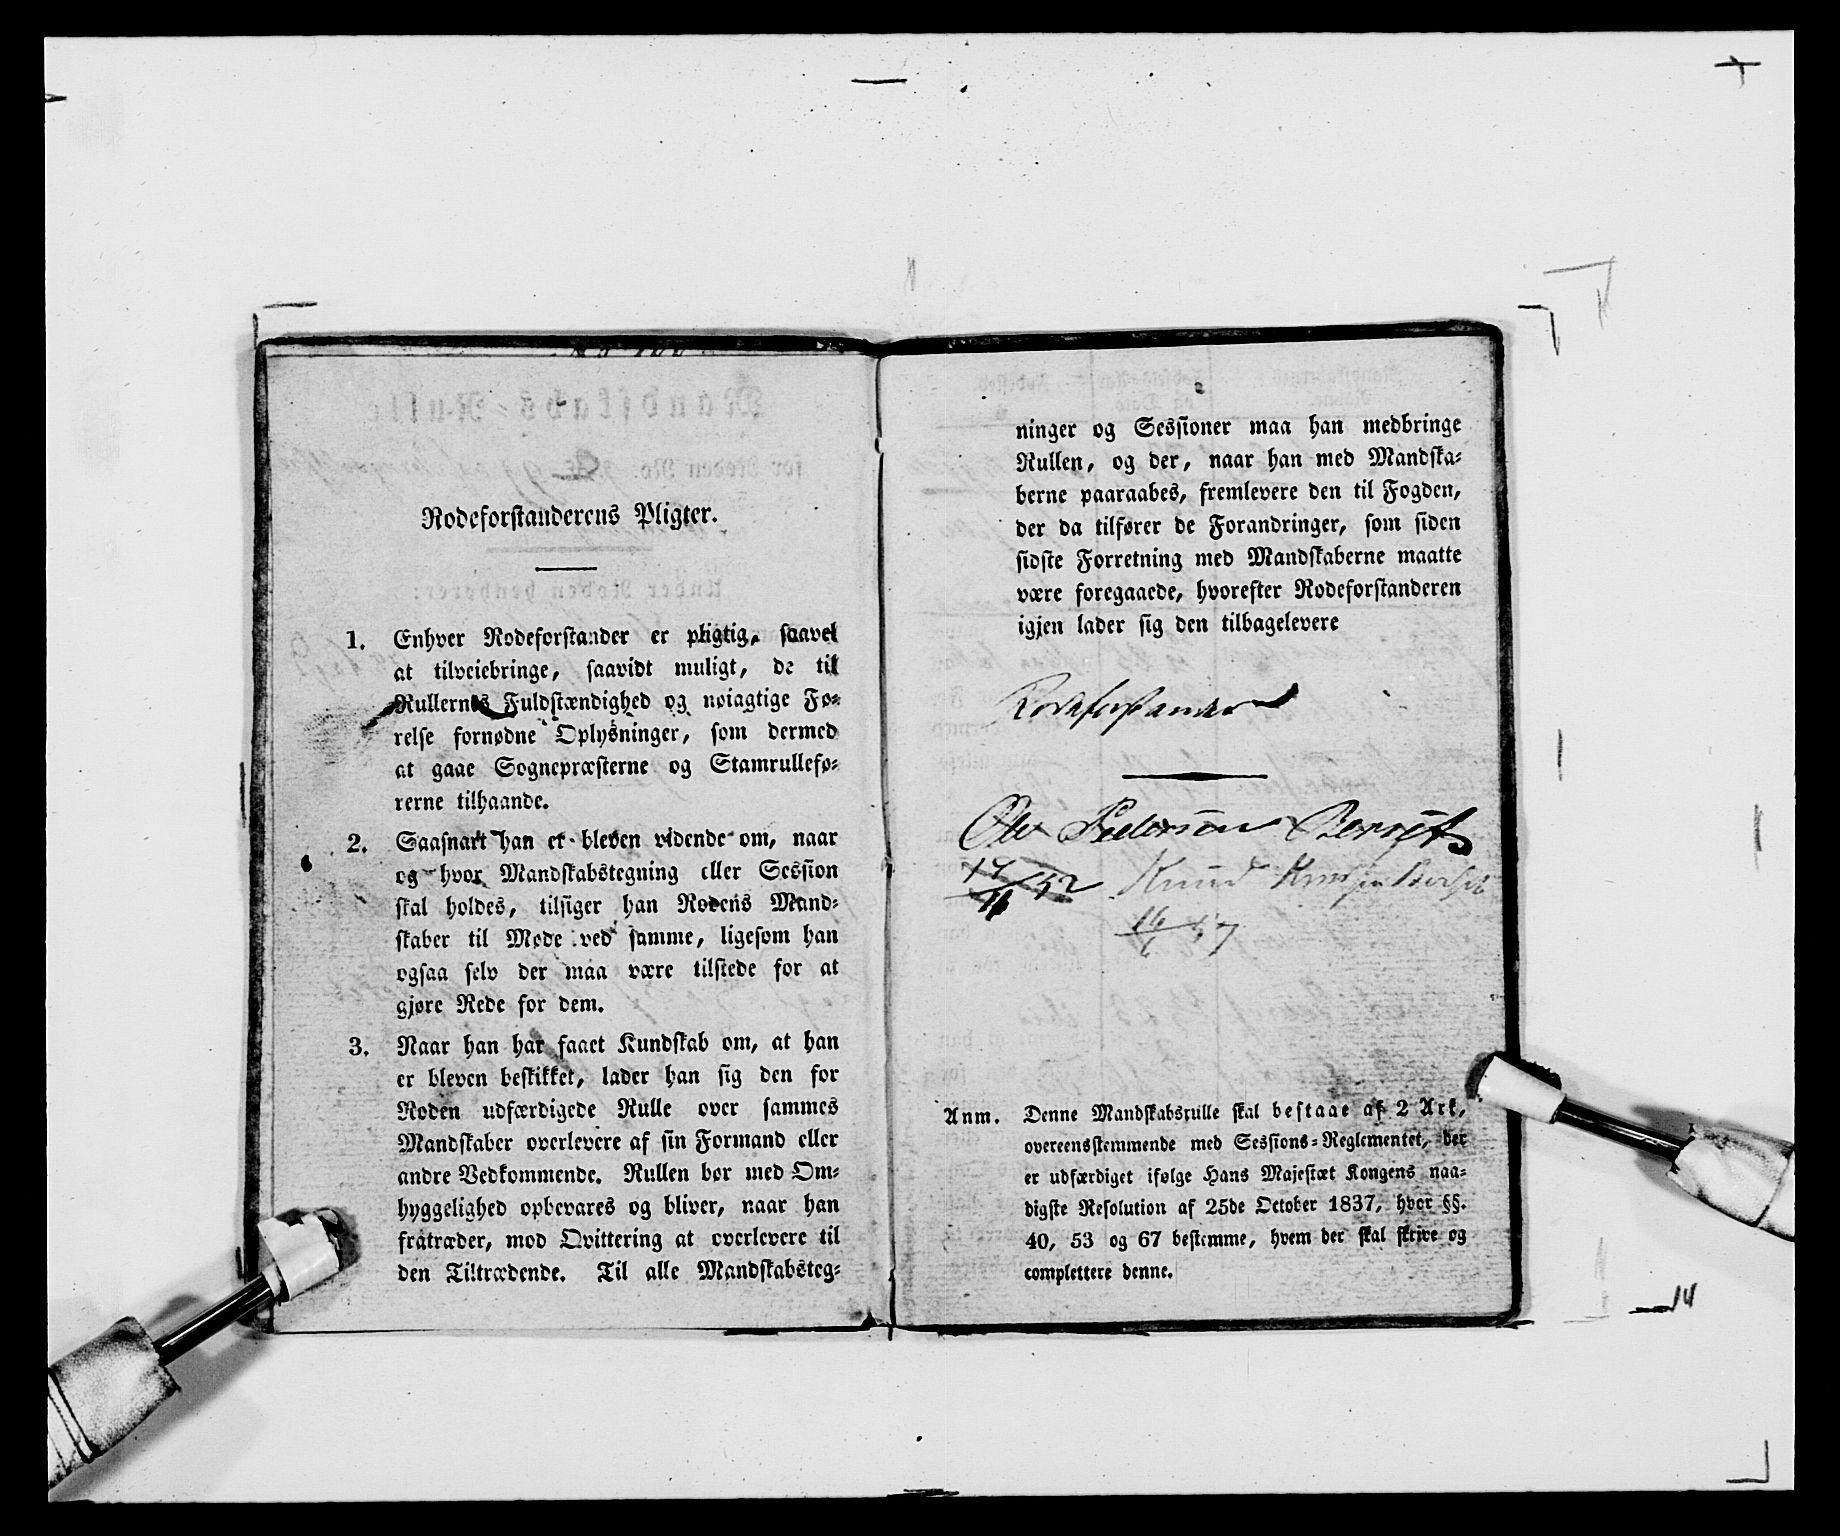 Rodeforstanderens Pligter.
1. Enhver Rodeforstander er pligtig, saavel
at tilveiebringe, saavidt muligt, de til
Rullernes Fuldstændighed og nøiagtige Fø-
relse fornødne Oplysninger, som dermed
at gaae Sognepræsterne og Stamrullefø-
rerne tilhaande.
2. Saasnart han er bleven vidende om, naar
og hvor Mandskabstegning eller Session
skal holdes, tilsiger han Rodens Mand-
skaber til Møde ved samme, ligesom han
ogsaa selv der maa være tilstede for at
gjøre Rede for dem.
3. Naar han har faaet Kundskab om, at han
er bleven beskikket, lader han sig den for
Roden udfærdigede Rulle over sammes
Mandskaber overlevere af sin Formand eller
andre Vedkommende. Rullen bør med Om-
hyggelighed opbevares og bliver, naar han
fratræder, mod Qvittering at overlevere til
den Tiltrædende. Til alle Mandskabsteg-
ninger og Sessioner maa han medbringe
Rullen, og der, naar han med Mandska-
berne paaraabes, fremlevere den til Fogden,
der da tilfører de Forandringer, som siden
sidste Forretning med Mandskaberne maatte
være foregaaede, hvorefter Rodeforstanderen
igjen lader sig den tilbagelevere
Rodeforstander
Ole Pedersen
Knud
Anm. Denne Mandskabsrulle skal bestaae af 2 Ark,
overeensstemmende med Sessions-Reglementet, der
er udfærdiget ifølge Hans Majestæt Kongens naa-
digste Resolution af 25de October 1837, hvor §§.
40, 53 og 67 bestemme, hvem der skal skrive og
complettere denne.
14